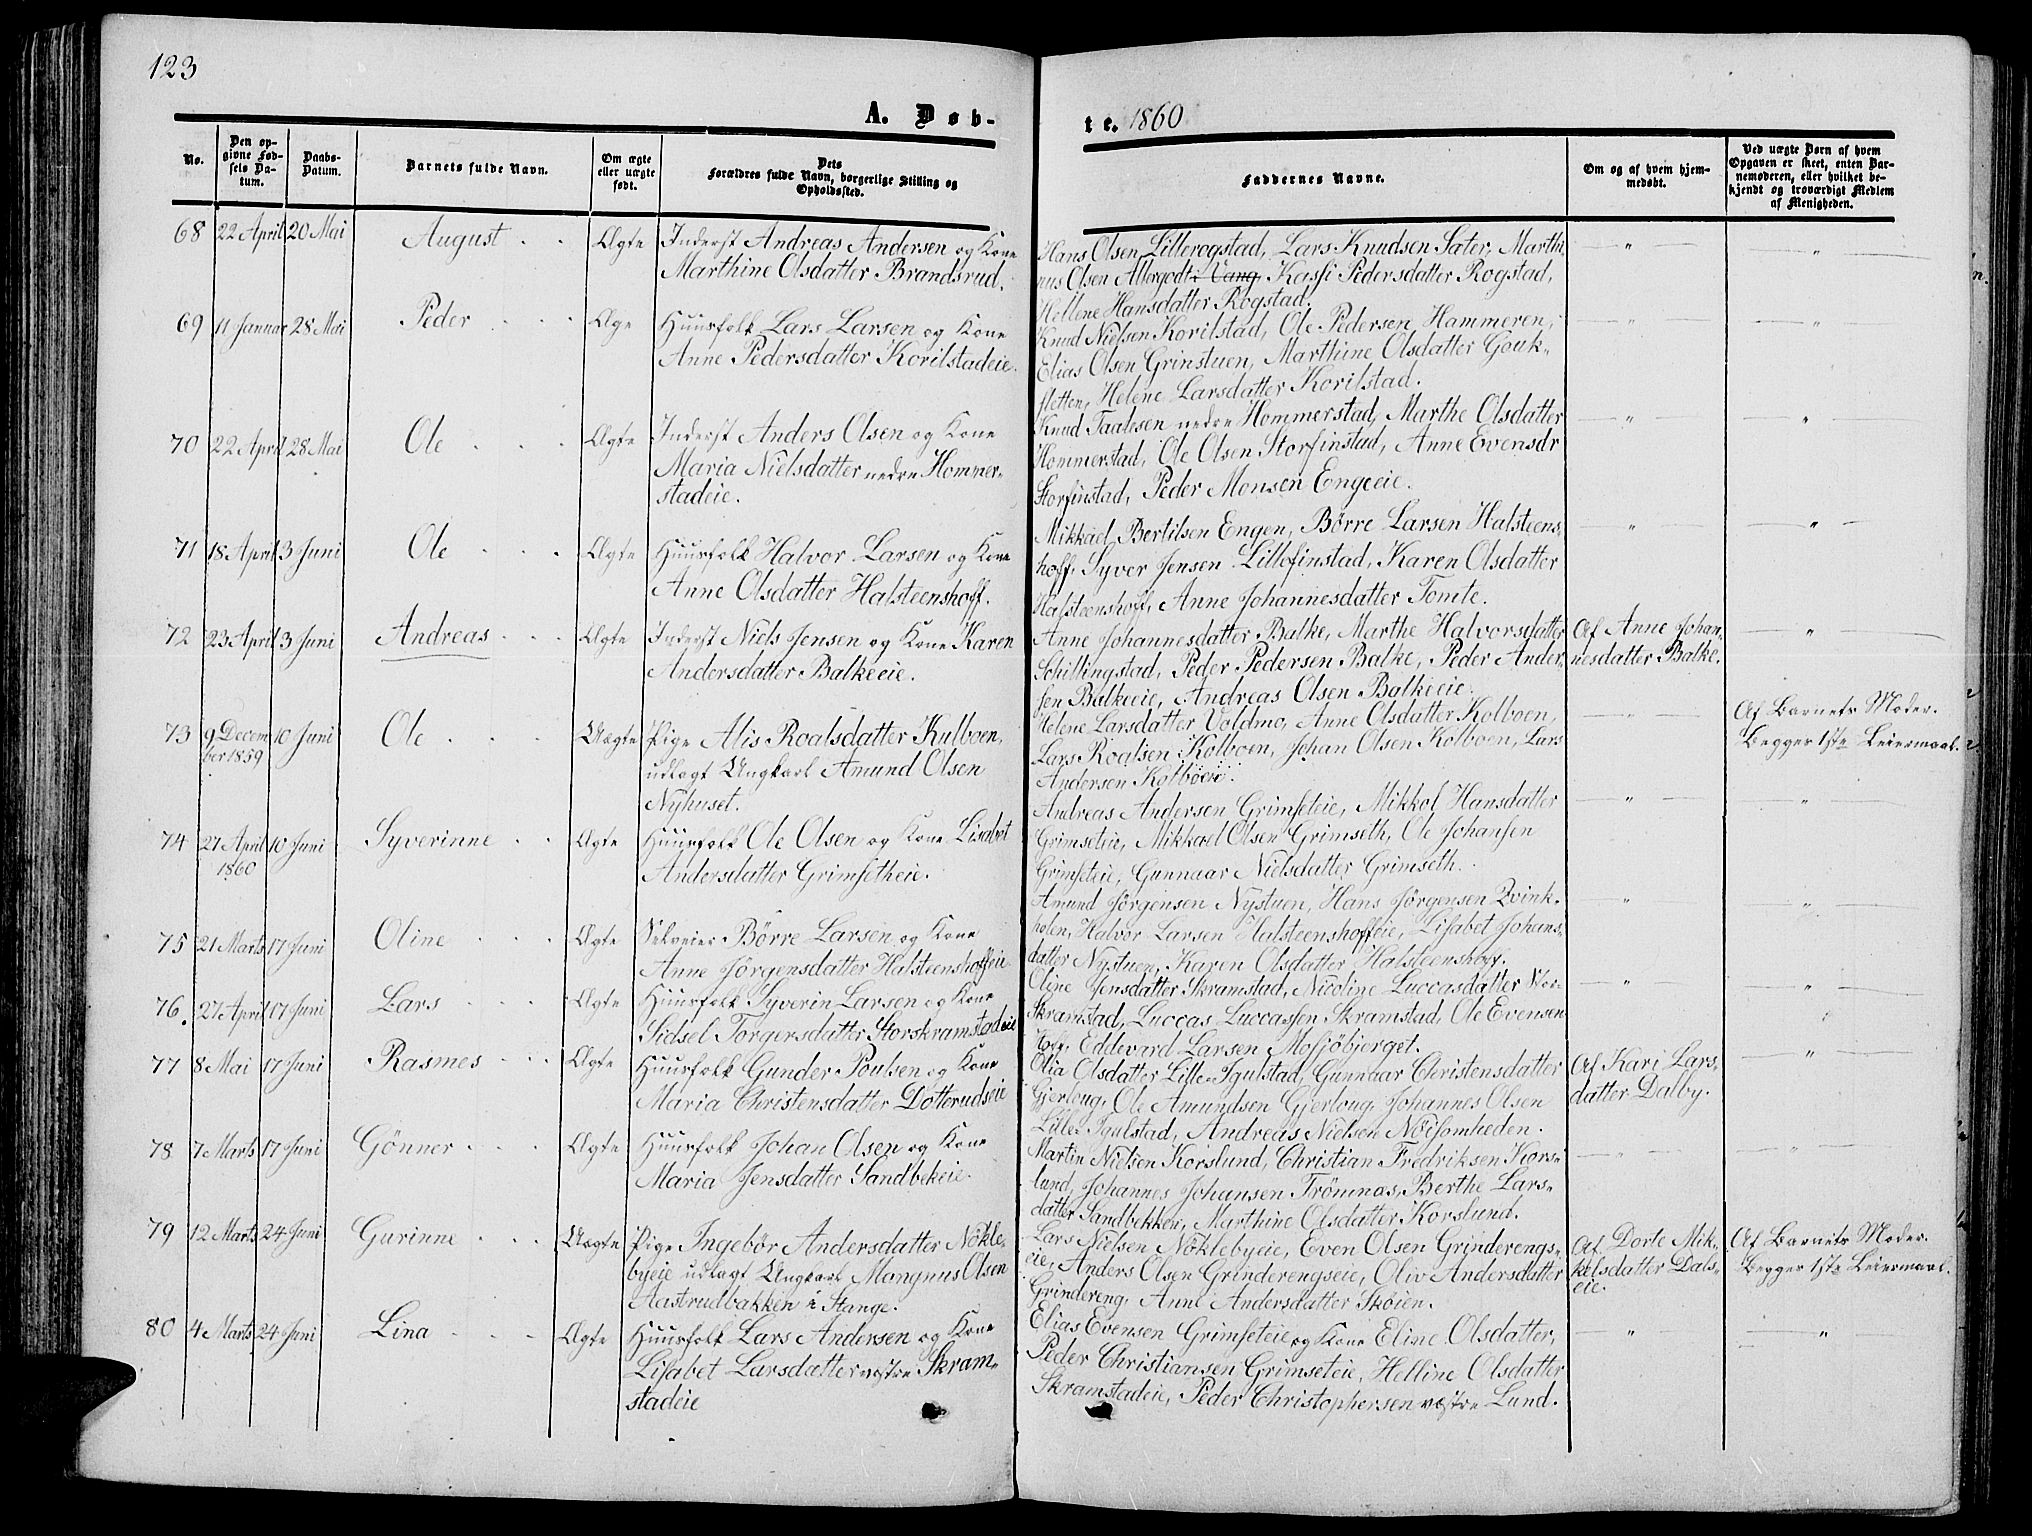 123
A. Døb-
te. 1860
No.
Den op-
givne Fød-
sels Da-
tum.
Daabs-
Datum.
Barnets fulde Navn.
Om ægte
eller uægte
født.
Dets
Forældres fulde Navn, borgerlige Stilling og
Opholdssted.
Faddernes Navne.
Om og af hvem hjem-
medøbt.
Ved uægte Børn af hvem
Opgaven er skeet, enten Bar-
nemoderen, eller hvilket be-
kjendt og troværdigt Medlem
af Menigheden.
68 22 April 20 Mai August Ægte Inderst Andreas Andersen og Kone
Marthine Olsdatter Brandsrud.
Hans Olsen Lillerogstad, Lars Knudsen Sater, Marthi-
nus Olsen Albergodt i Vang Kasfi Pedersdatter Rogstad,
Hellene Hansdatter Rogstad.
69 11 Januar 28 Mai Peder Æge Huusfolk Lars Larsen og Kone
Anne Pedersdatter Korilstadeie.
Knud Nielsen Korilstad, Ole Pedersen Hammeren,
Elias Olsen Grinstuen, Marthine Olsdatter Gouk-
sletten, Helene Larsdatter Korilstad.
70 22 April 28 Mai Ole Ægte Inderst Anders Olsen og Kone
Maria Nielsdatter nedre Hommer-
stadeie.
Knud Taalesen nedre Hommerstad, Marthe Olsdatter
Hommerstad, Ole Olsen Storfinstad, Anne Evensdr
Storfinstad, Peder Monsen Engeeie.
71 18 April 3 Juni Ole Ægte Huusfolk Halvor Larsen og Kone
Anne Olsdatter Halsteenshoff.
Mikkael Bertilsen Engen, Børre Larsen Halsteens-
hoff, Syver Jensen Lillefinstad, Karen Olsdatter
Halsteenshoff, Anne Johannesdatter Tomte.
72 23 April 3 Juni Andreas Ægte Inderst Niels Jensen og Kone Karen
Andersdatter Balkeeie.
Anne Johannesdatter Balke, Marthe Halvorsdatter
Schillingstad, Peder Pedersen Balke, Peder Ander-
sen Balkeeie, Andreas Olsen Balkieie.
Af Anne Johan-
nesdatter Balke.
73 9 Decem
ber 1859 10 Juni Ole Uægte Pige Alis Roalsdatter Kulboen,
udlagt Ungkarl Amund Olsen
Nyhuset.
Helene Larsdatter Voldmo, Anne Olsdatter Kolboen,
Lars Roalsen Kolboen, Johan Olsen Kolboen, Lars
Andersen Kolbøeie.
Af Barnets Moder.
Begges 1ste Leiermaal.
74 27 April
1860 10 Juni Syverinne Ægte Huusfolk Ole Olsen og Kone Lisabet
Andersdatter Grimsetheie.
Andreas Andersen Grimseteie, Mikkol Hansdatter
Grimseteie, Mikkael Olsen Grimseth, Ole Johansen
Grimseteie, Gunnaar Nielsdatter Grimseth.
75 21 Marts 17 Juni Oline Ægte Selveier Børre Larsen og Kone
Anne Jørgensdatter Halsteenshoffeie
Amund Jørgensen Nystuen, Hans Jørgensen Qvink-
holen, Halvor Larsen Halsteenshoffeie, Lisabet Johans-
datter Nystuen, Karen Olsdatter Halsteenshoff.
76. 27 April 17 Juni Lars Ægte Huusfolk Syverin Larsen og Kone
Sidsel Torgersdatter Storskramstadeie
Oline Jensdatter Skramstad, Nicoline Luccasdatter Stor-
Skramstad, Luccas Luccassen Skramstad, Ole Evensen
Hoff, Eddevard Larsen Mosjöbjerget.
77 8 Mai 17 Juni Rasmes Ægte Huusfolk Gunder Poulsen og Kone
Maria Christensdatter Dotterudseie
Olia Olsdatter Lille-Igulstad, Gunnaar Christensdatter
Gjerloug, Ole Amundsen Gjerloug, Johannes Olsen
Lille-Igulstad, Andreas Nielsen Nöisomheden.
Af Kari Lars-
datter Dalby.
78 7 Marts 17 Juni Gönner Ægte Huusfolk Johan Olsen og Kone
Maria Jensdatter Sandbekeie.
Martin Nielsen Korslund, Christian Fredriksen Kors-
lund, Johannes Johansen Trömnæs, Berthe Lars-
datter Sandbekken, Marthine Olsdatter Korslund.
79 12 Marts 24 Juni Gurinne Uægte Pige Ingebör Andersdatter Nökle-
byeie udlagt Ungkarl Mangnus Olsen
Aastrudbakken i Stange.
Lars Nielsen Nöklebyeie, Even Olsen Grinderengs-
eie, Anders Olsen Grinderengseie, Oliv Andersdatter
Grindereng, Anne Andersdatter Sköien.
Af Dorte Mik-
kelsdatter Dals-
eie.
Af Barnets Moder.
Begges 1ste Leiermaal.
80 4 Marts 24 Juni Lina Ægte Huusfolk Lars Andersen og Kone
Lisabet Larsdatter vestre Skram-
stadeie
Elias Evensen Grimseteie og Kone Eline Olsdatter,
Peder Christiansen Grimseteie, Helline Olsdatter
Skramstadeie, Peder Christophersen vestre Lund.